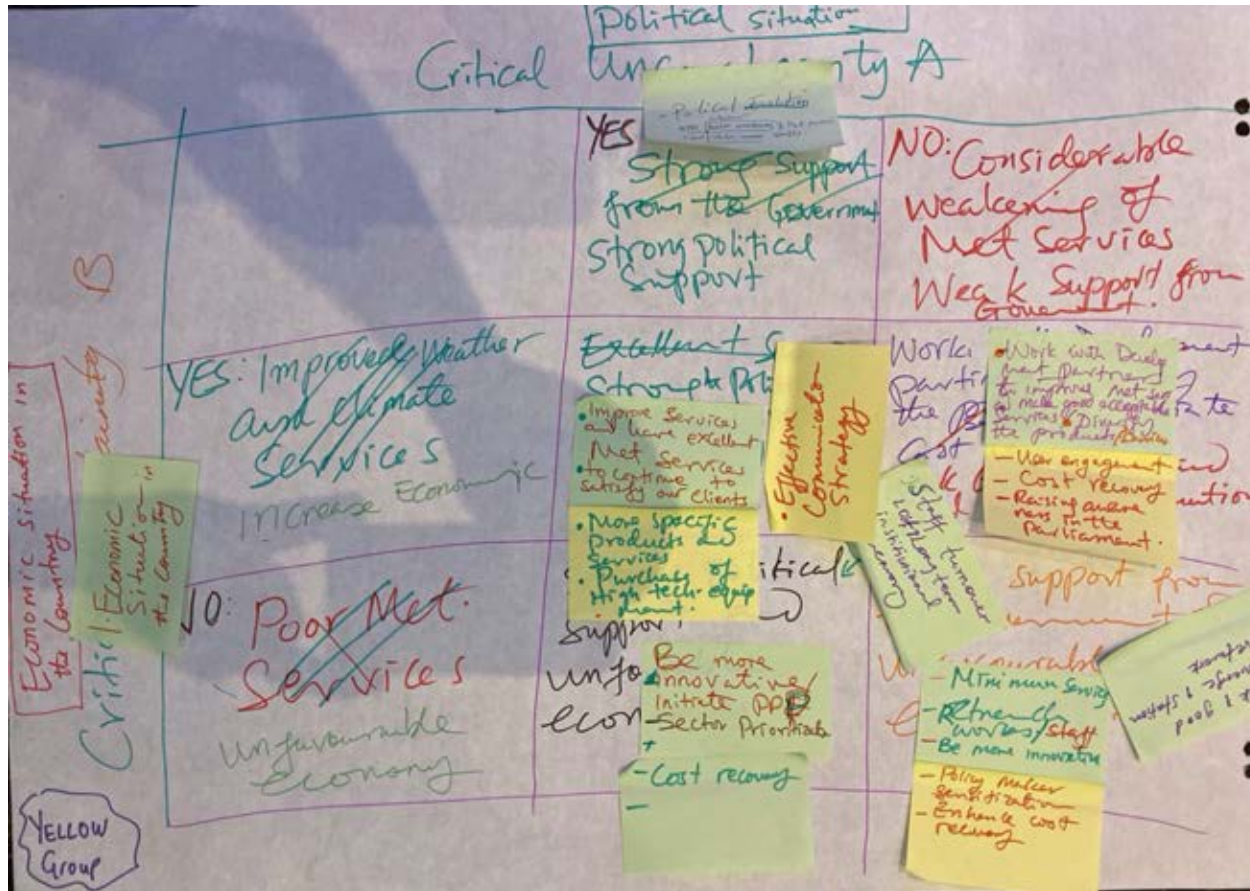 Political situation
Critical Unc nty A
- Political
YES
Strong Support
from the Government
Strong political
Support
NO: Considerable
Weakening of
Met Services
Weak Support from
Goverment.
Economic situation in
the Country
Critical
ainty B
Economic
Situation in
the Country
YES: Improved Weather
and Climate
Services
increase Economic
Excellent S
Strong Poli
• Improve Services
and have excellent
Met Services
• to continue to
satisfy our clients
• More specific
products and
Services
• Purchase of
High tech equip
ment.
• Effective
Communication
Strategy
Work
parti
the
Cost
• Work with Develop
ment partners
to improve Met Ser
to make good acceptable
services • Diversify
the products
- User engagement
- Cost recovery
- Raising aware
ness in the
parliament.
Staff turnover
institutional
memory
NO: Poor Met.
Services
Unfavourable
economy
itical
support
Unfo
econ
Be more
innovative/
Initiate PPP
- Sector Prioritizate
- Cost recovery
-
support from
- Minimum Service
- Retrench
workers/staff
- Be more innovative
- Policy Maker
sensitization
- Enhance cost
recovery
good
station
network
YELLOW
Group